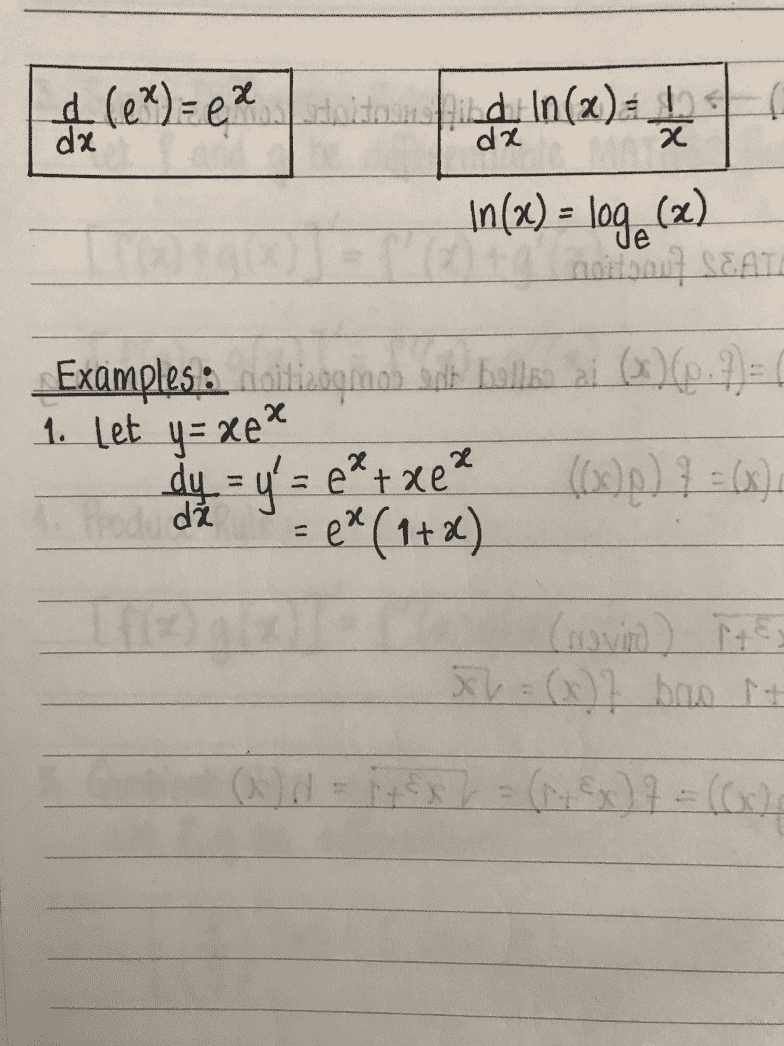 d/dx (eˣ) = eˣ
d/dx ln(x) = 1/x
ln(x) = logₑ (x)
Examples:
1. Let y = xeˣ
dy/dx = y' = eˣ + xeˣ
= eˣ(1+x)